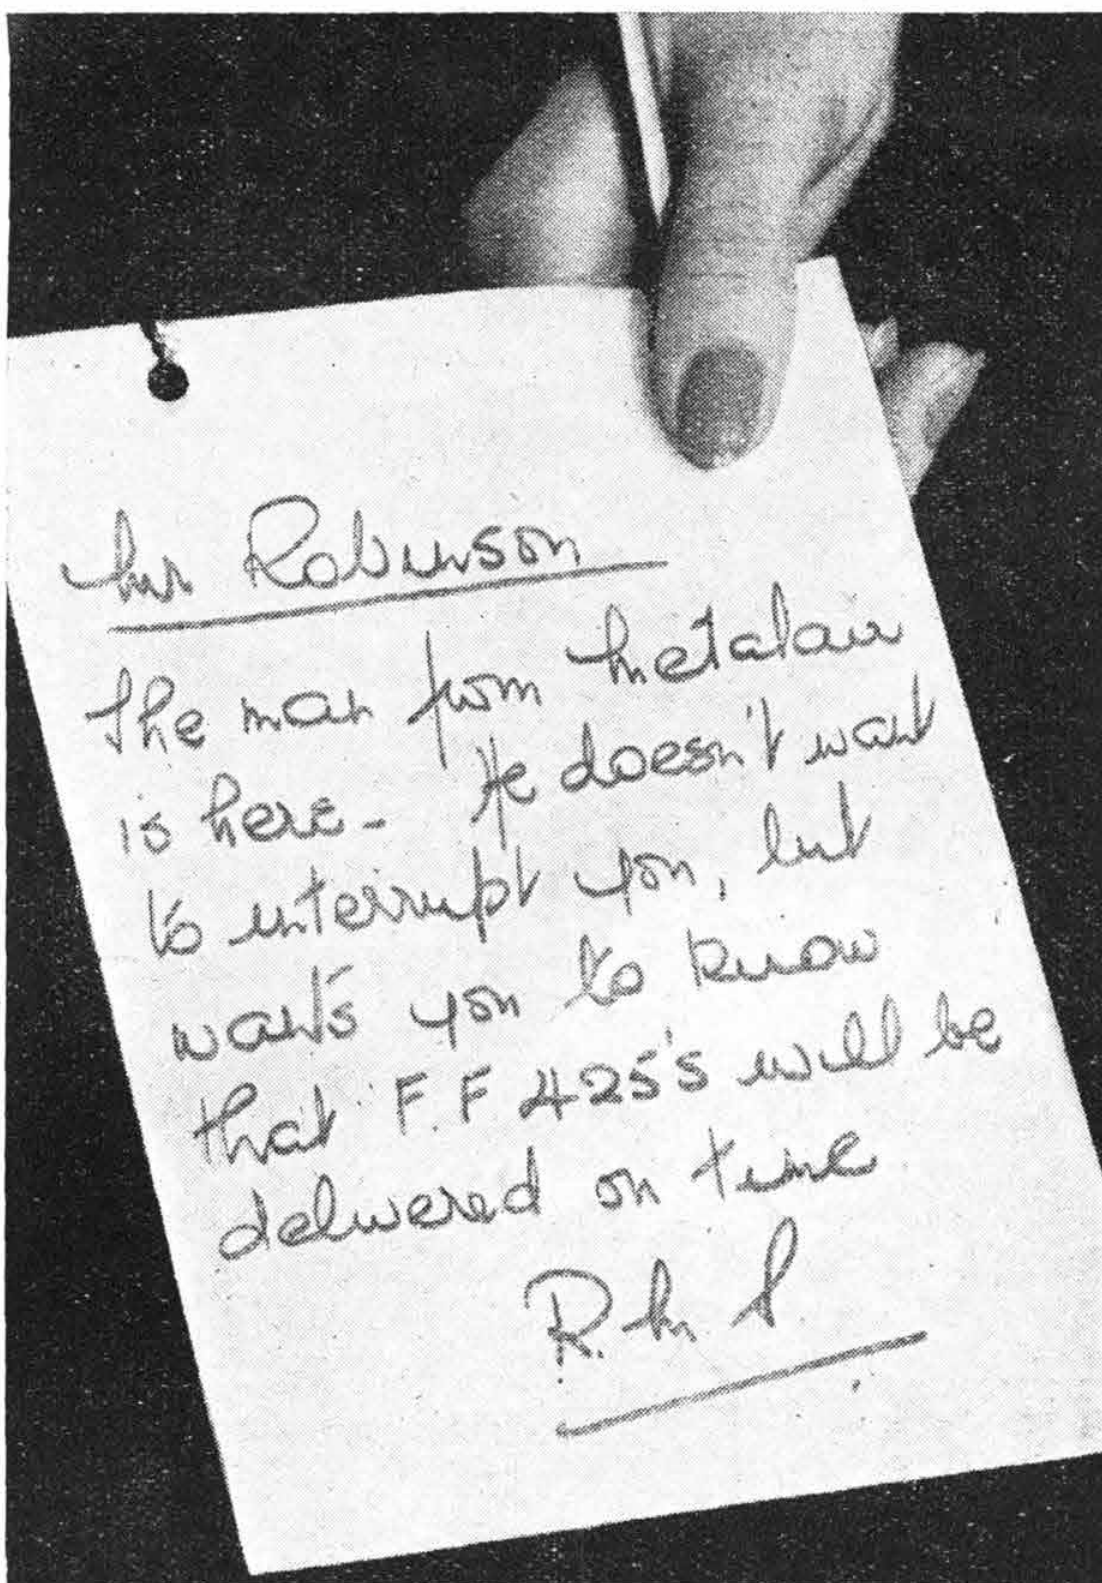 Mr Robinson
The man from Metalair
is here - He doesn't want
to interrupt you, but
wants you to know
that F.F 425's will be
delivered on time
R. M S.